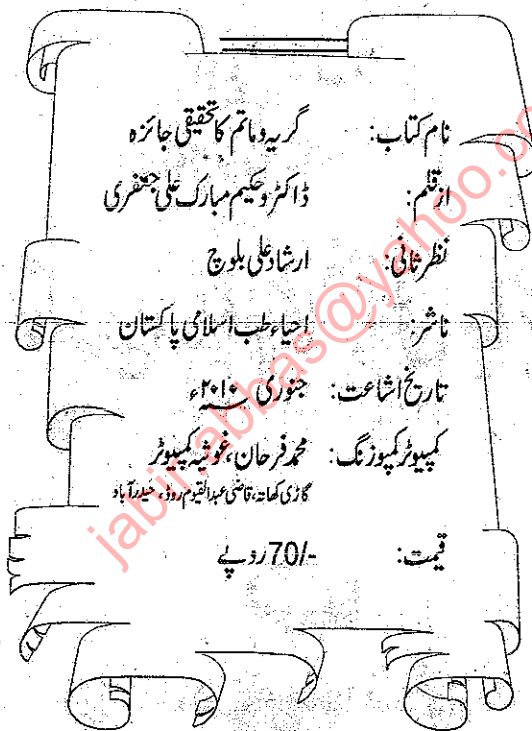 نام کتاب: گریہ و ماتم کا تحقیقی جائزہ
از قلم: ڈاکٹر و حکیم مبارک علی جعفری
نظر ثانی: ارشاد علی بلوچ
ناشر: احیاء طب اسلامی پاکستان
تاریخ اشاعت: جنوری ۲۰۱۰ء
کمپیوٹر کمپوزنگ: محمد فرحان، غوثیہ کمپیوٹر
گاڑی کھاتہ، قاضی عبدالقیوم روڈ، حیدرآباد
قیمت: 70/- روپے
jabir.abbas@yahoo.co